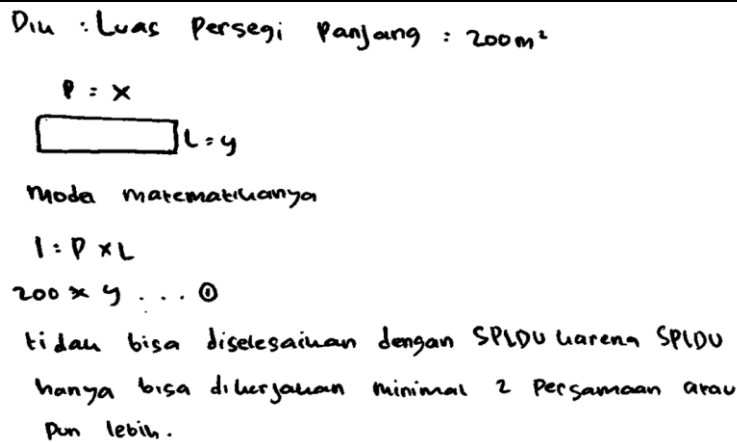 Dik : Luas Persegi Panjang : 200 m²
P = X
L = y
Model matematikanya
l = P × L
200 x y . . . ①
tidak bisa diselesaikan dengan SPLDV karena SPLDV
hanya bisa dikerjakan minimal 2 Persamaan atau
Pun lebih.